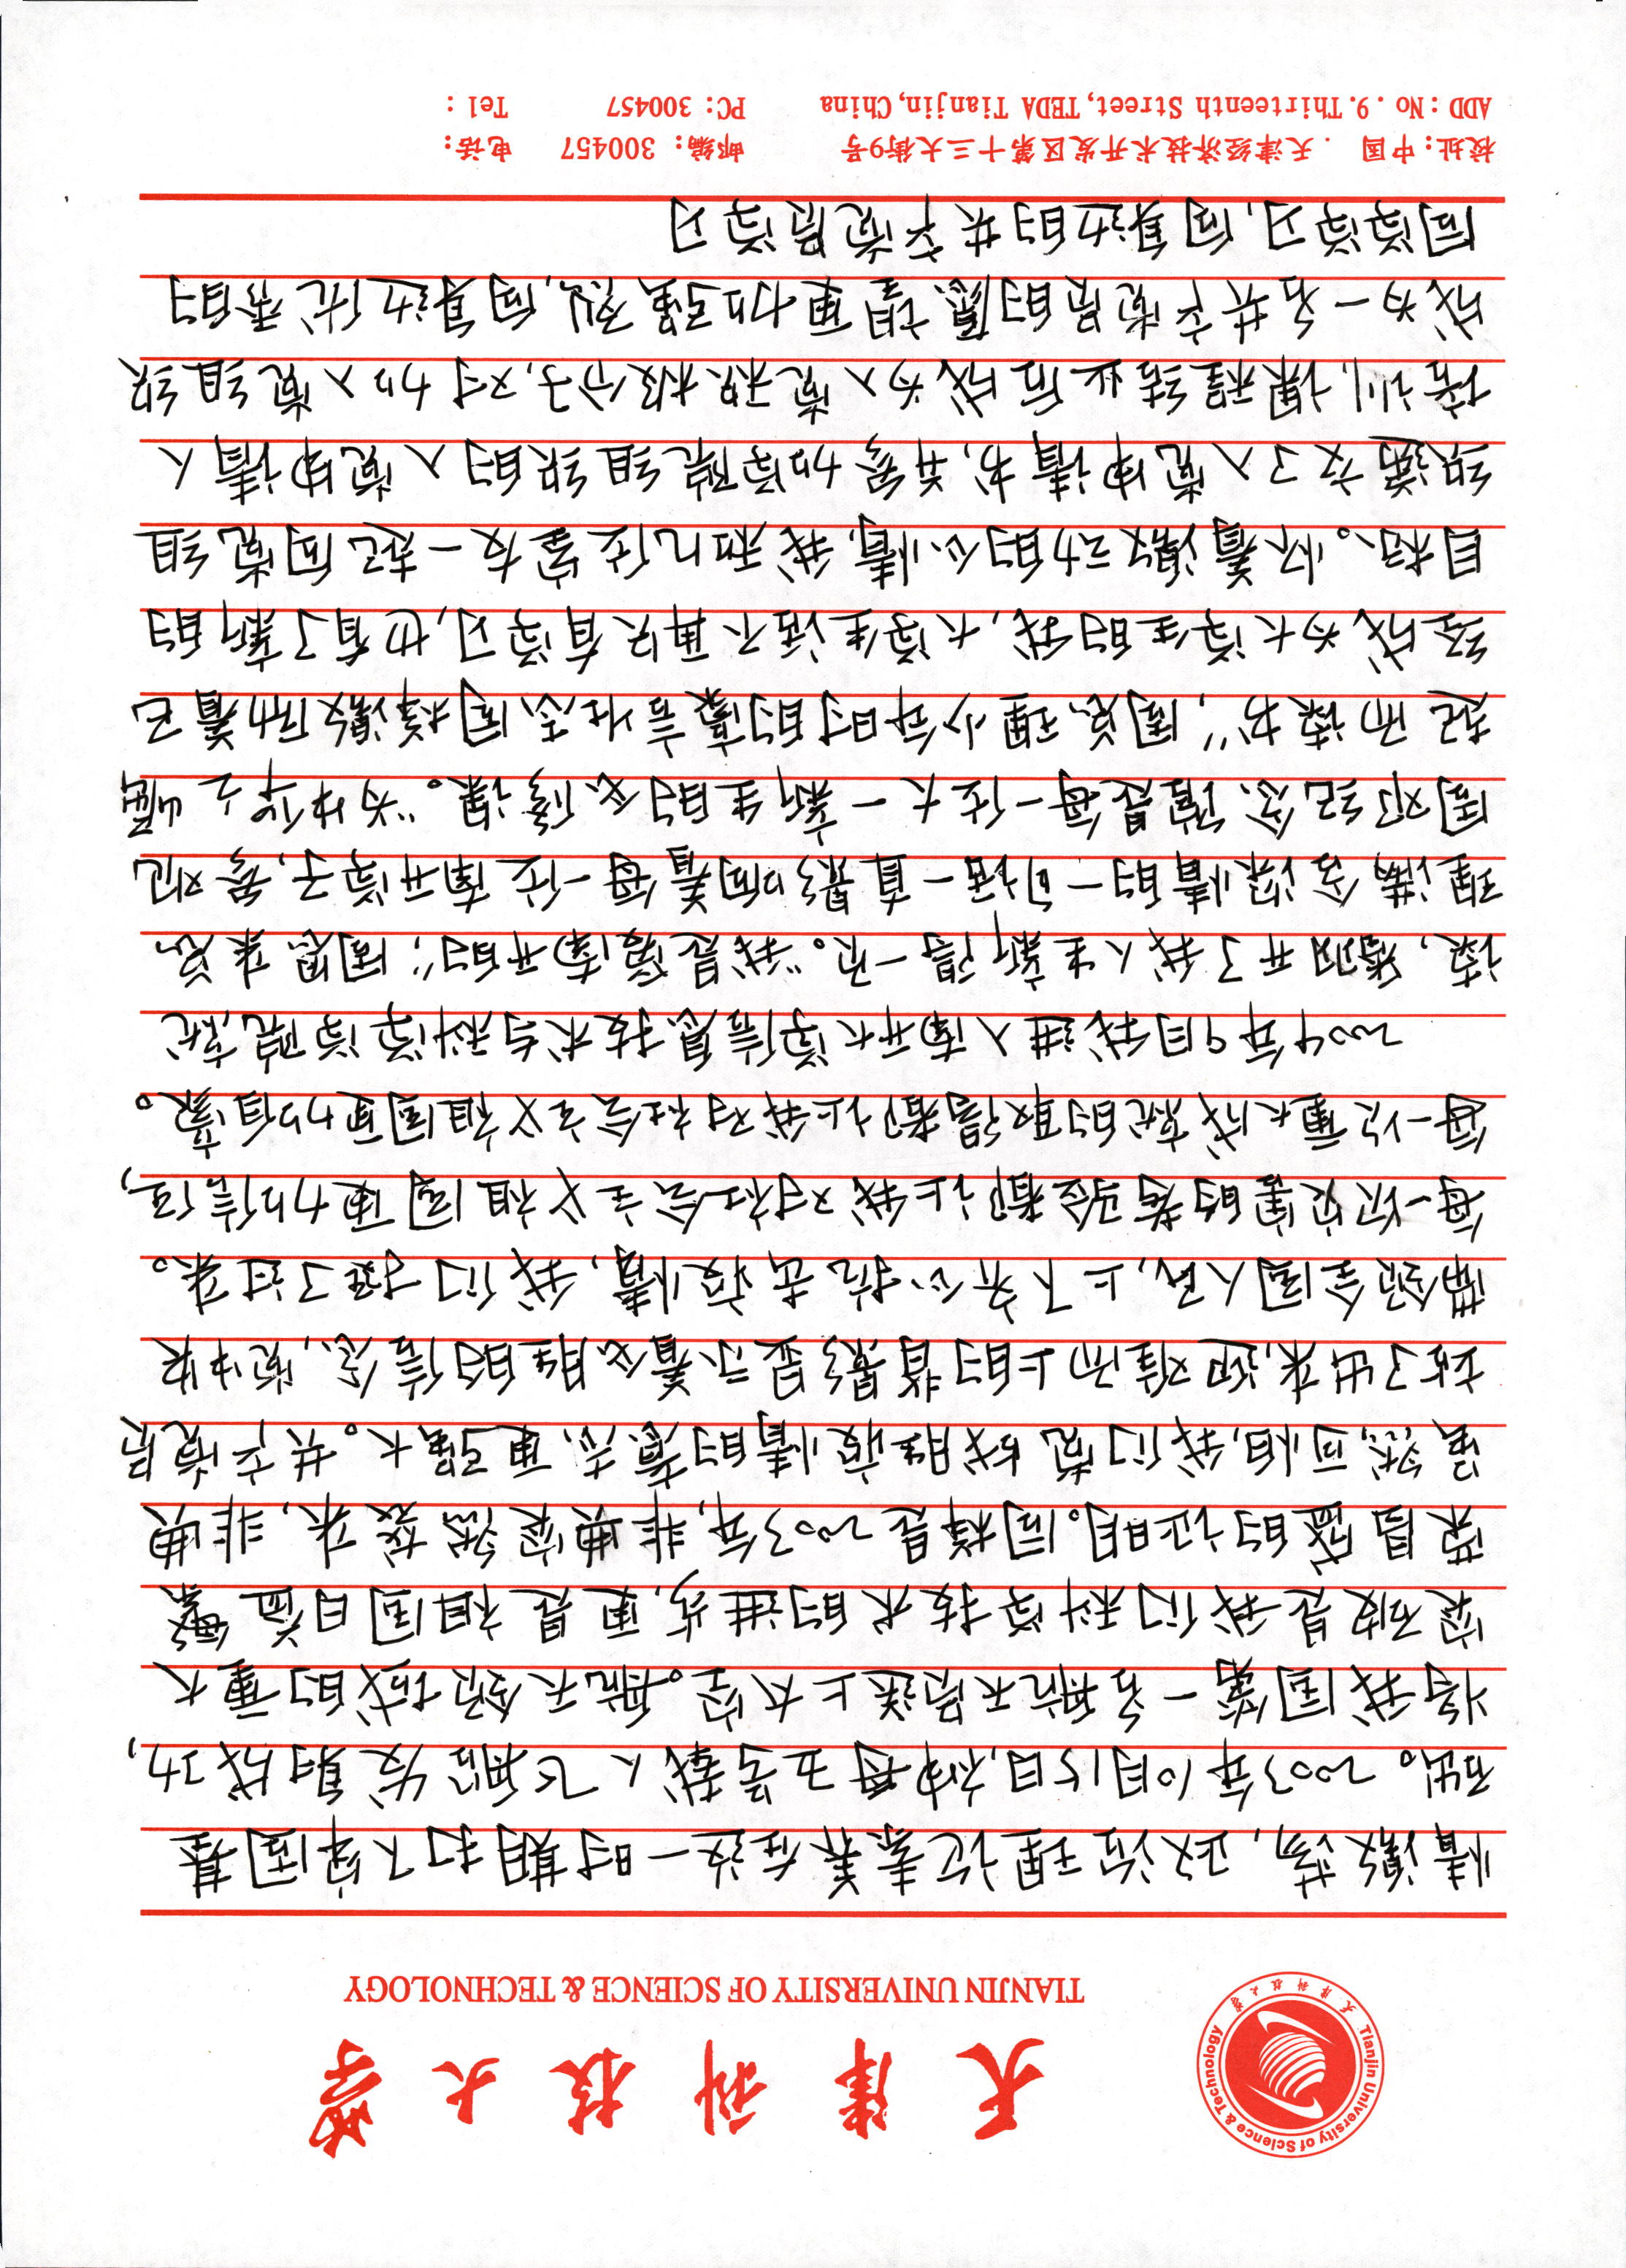 Tianjin University of Science & Technology
天津科技大学
天津科技大学
TIANJIN UNIVERSITY OF SCIENCE & TECHNOLOGY
情激荡,政治理论素养在这一时期打下牢固基
础。2003年10月15日,神舟五号载人飞船发射成功,
将我国第一名航天员送上太空。航天领域的重大
突破是我们科学技术的进步,更是祖国日益繁
荣昌盛的证明。同样是2003年,非典突然袭来,非典
虽然可怕,我们党战胜疫情的意志更强大。共产党员
站了出来,迎难而上的背影显示着必胜的信念,党中央
带领全国人民,上下齐心抗击疫情,我们挺了过来。
每一次灾害的考验都让我对社会主义祖国更加信任,
每一次重大成就的取得都让我对社会主义祖国更加自豪。
2004年9月我进入南开大学信息技术与科学学院就
读,翻开了我人生新得一页。“我是爱南开的”,周恩来总
理满含深情的一句话一直影响着每一位南开学子,参观
周邓纪念馆是每一位大一新生的必修课。“为中华之崛
起而读书”,周总理少年时的豪言壮志同样激励着已
经成为大学生的我,大学生活不再只有学习,也有了新的
目标、。怀着激动的心情,我和几位室友一起向党组
织递交了入党申请书,并参加学院组织的入党申请人
培训,课程结业后成为入党积极分子,对加入党组织
成为一名共产党员的愿望更加强烈,向身边优秀的
同学学习,向身边的共产党员学习
校址:中国 .天津经济技术开发区第十三大街9号 邮编:300457 电话:
ADD :No .9.Thirteenth Street,TEDA Tianjin,China PC: 300457 Tel :